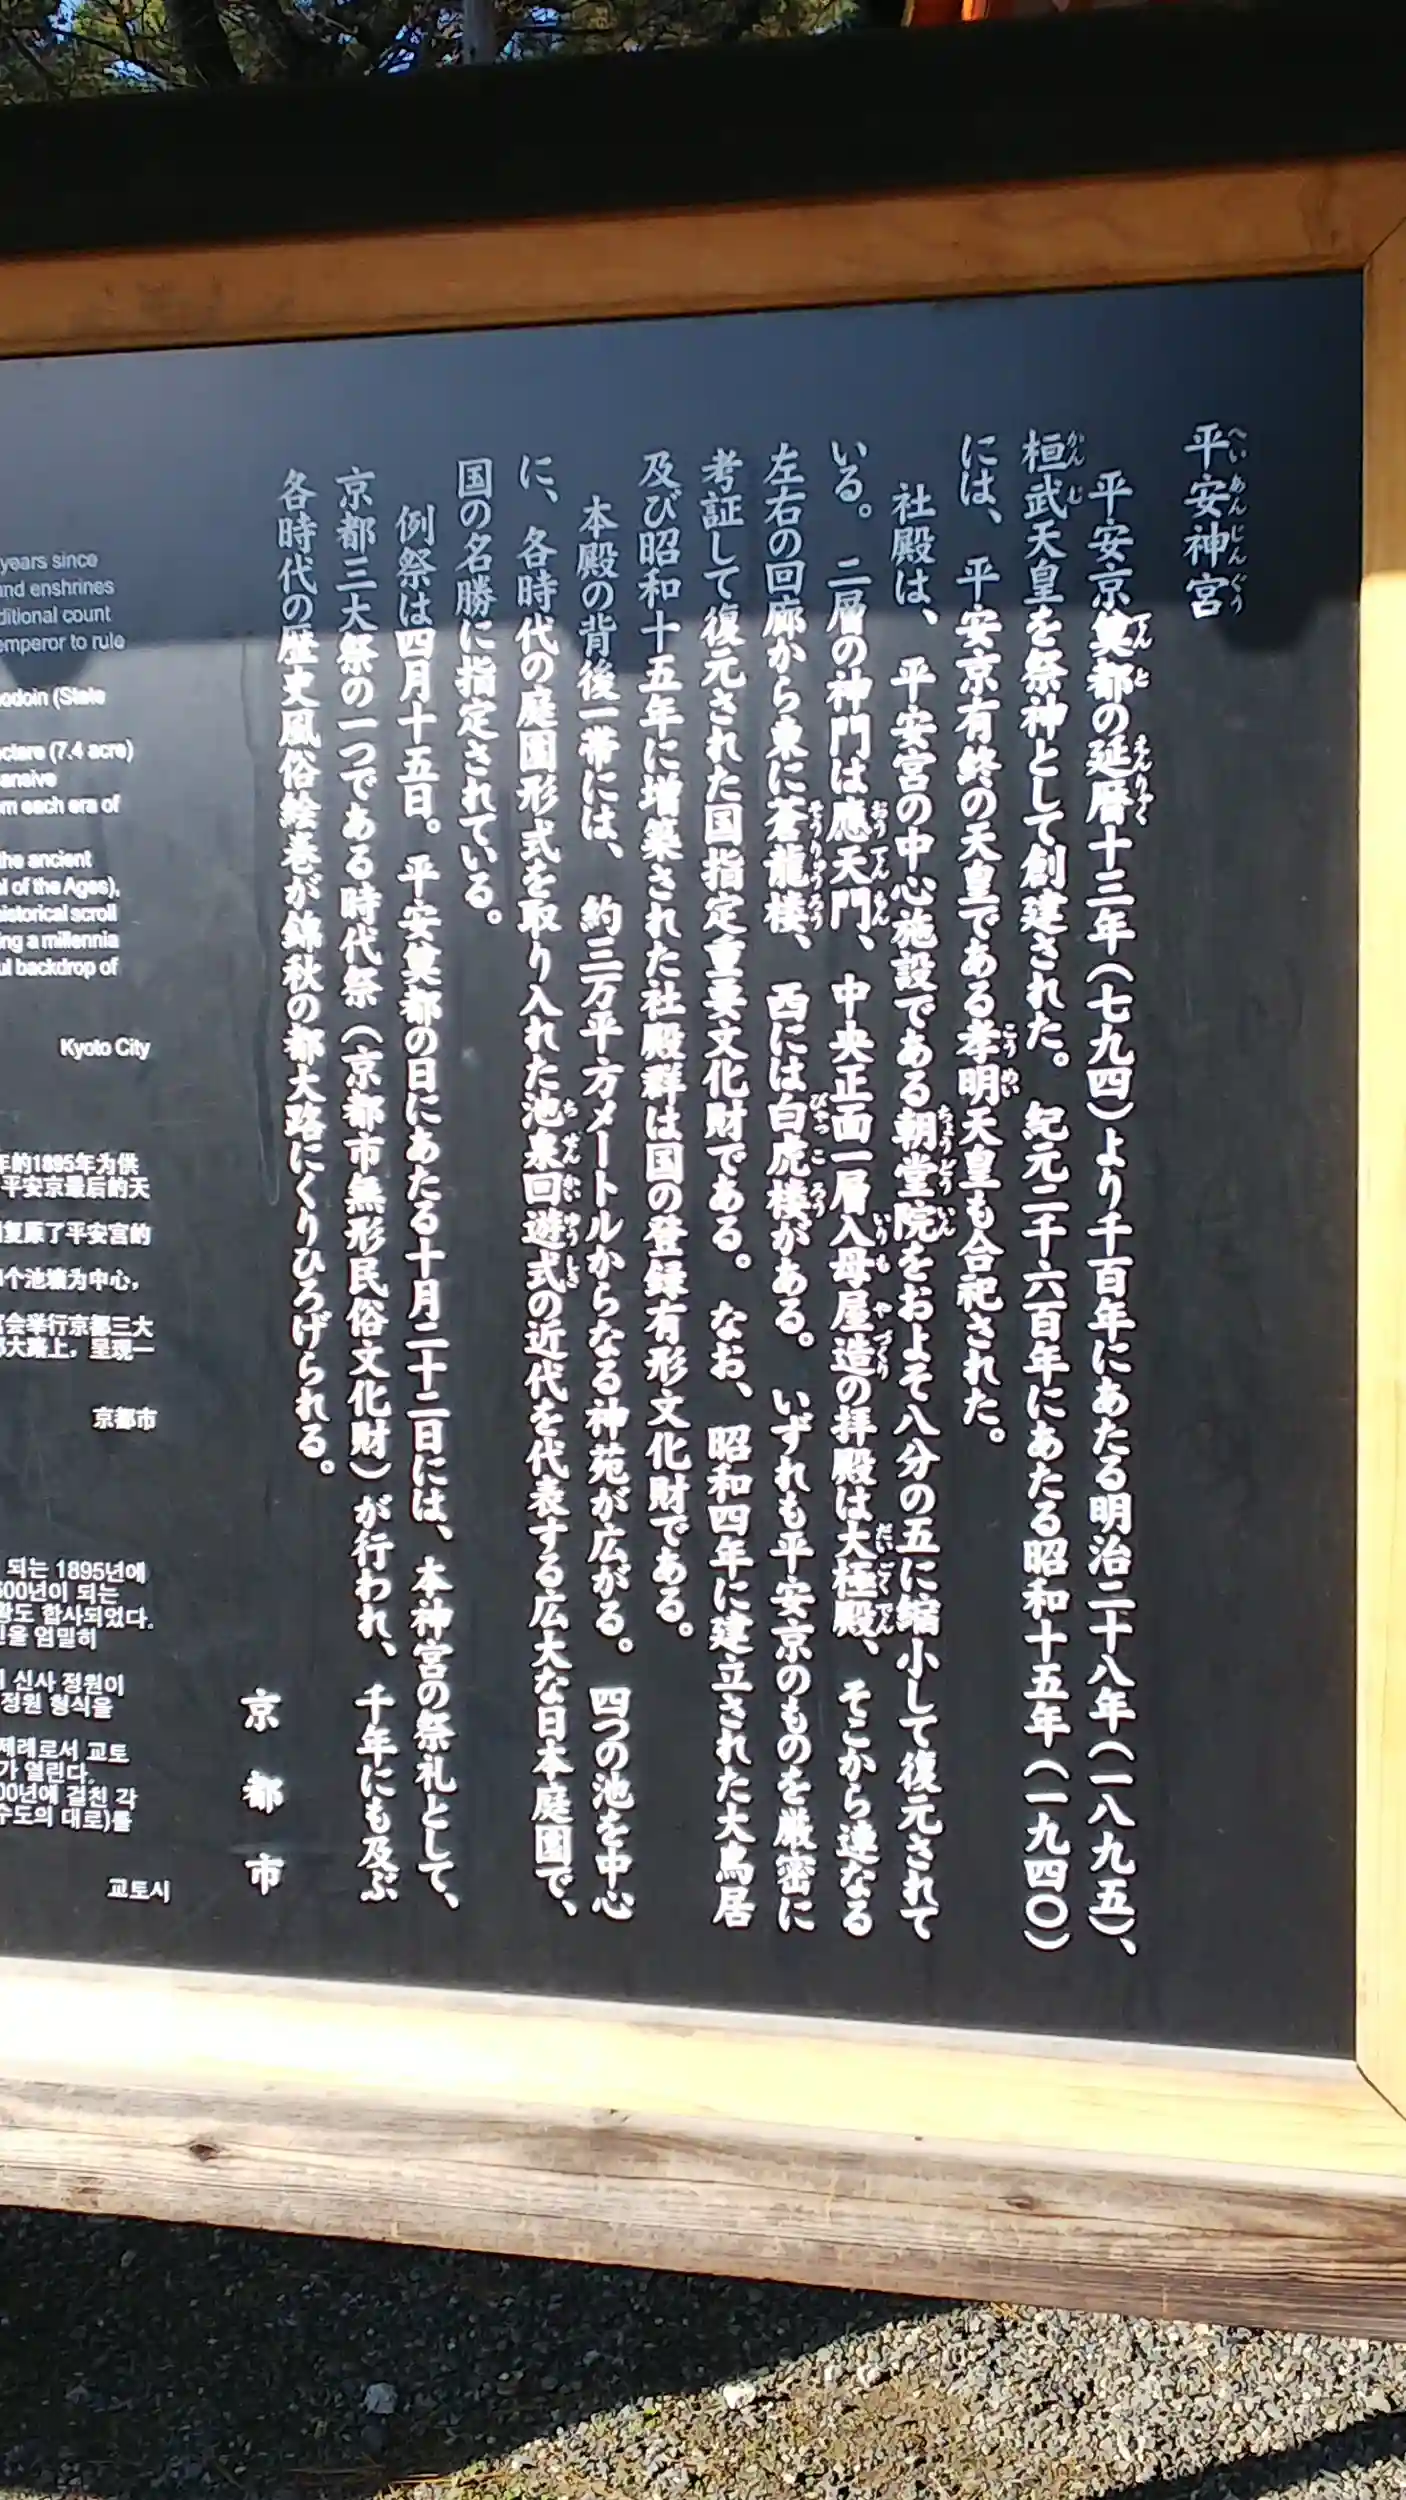 平安神宮
へいあんじんぐう
平安京奠都の延暦十三年(七九四)より千百年にあたる明治二十八年(一八九五)、
てんと えんりゃく
桓武天皇を祭神として創建された。紀元二千六百年にあたる昭和十五年(一九四〇)
かんむ
には、平安京有終の天皇である孝明天皇も合祀された。
こうめい
社殿は、平安宮の中心施設である朝堂院をおよそ八分の五に縮小して復元されて
ちょうどういん
いる。二層の神門は應天門、中央正面一層入母屋造の拝殿は大極殿、そこから連なる
おうてんもん いりもやづくり だいごくでん
左右の回廊から東に蒼龍楼、西には白虎楼がある。いずれも平安京のものを厳密に
そうりゅうろう びゃっころう
考証して復元された国指定重要文化財である。なお、昭和四年に建立された大鳥居
及び昭和十五年に増築された社殿群は国の登録有形文化財である。
本殿の背後一帯には、約三万平方メートルからなる神苑が広がる。四つの池を中心
に、各時代の庭園形式を取り入れた池泉回遊式の近代を代表する広大な日本庭園で、
ちせんかいゆうしき
国の名勝に指定されている。
例祭は四月十五日。平安奠都の日にあたる十月二十二日には、本神宮の祭礼として、
京都三大祭の一つである時代祭(京都市無形民俗文化財)が行われ、千年にも及ぶ
各時代の歴史風俗絵巻が錦秋の都大路にくりひろげられる。
京都市
years since
and enshrines
ditional count
emperor to rule
odoin (State
ectare (7.4 acre)
ansive
om each era of
the ancient
l of the Ages),
historical scroll
ing a millennia
ul backdrop of
Kyoto City
年的1895年为供
平安京最后的天
复原了平安宫的
个池塘为中心，
会举行京都三大
都大路上，呈现一
京都市
되는 1895년에
600년이 되는
황도 합사되었다.
인을 엄밀히
신사 정원이
정원 형식을
제례로서 교토
가 열린다.
00년에 걸친 각
수도의 대로)를
교토시